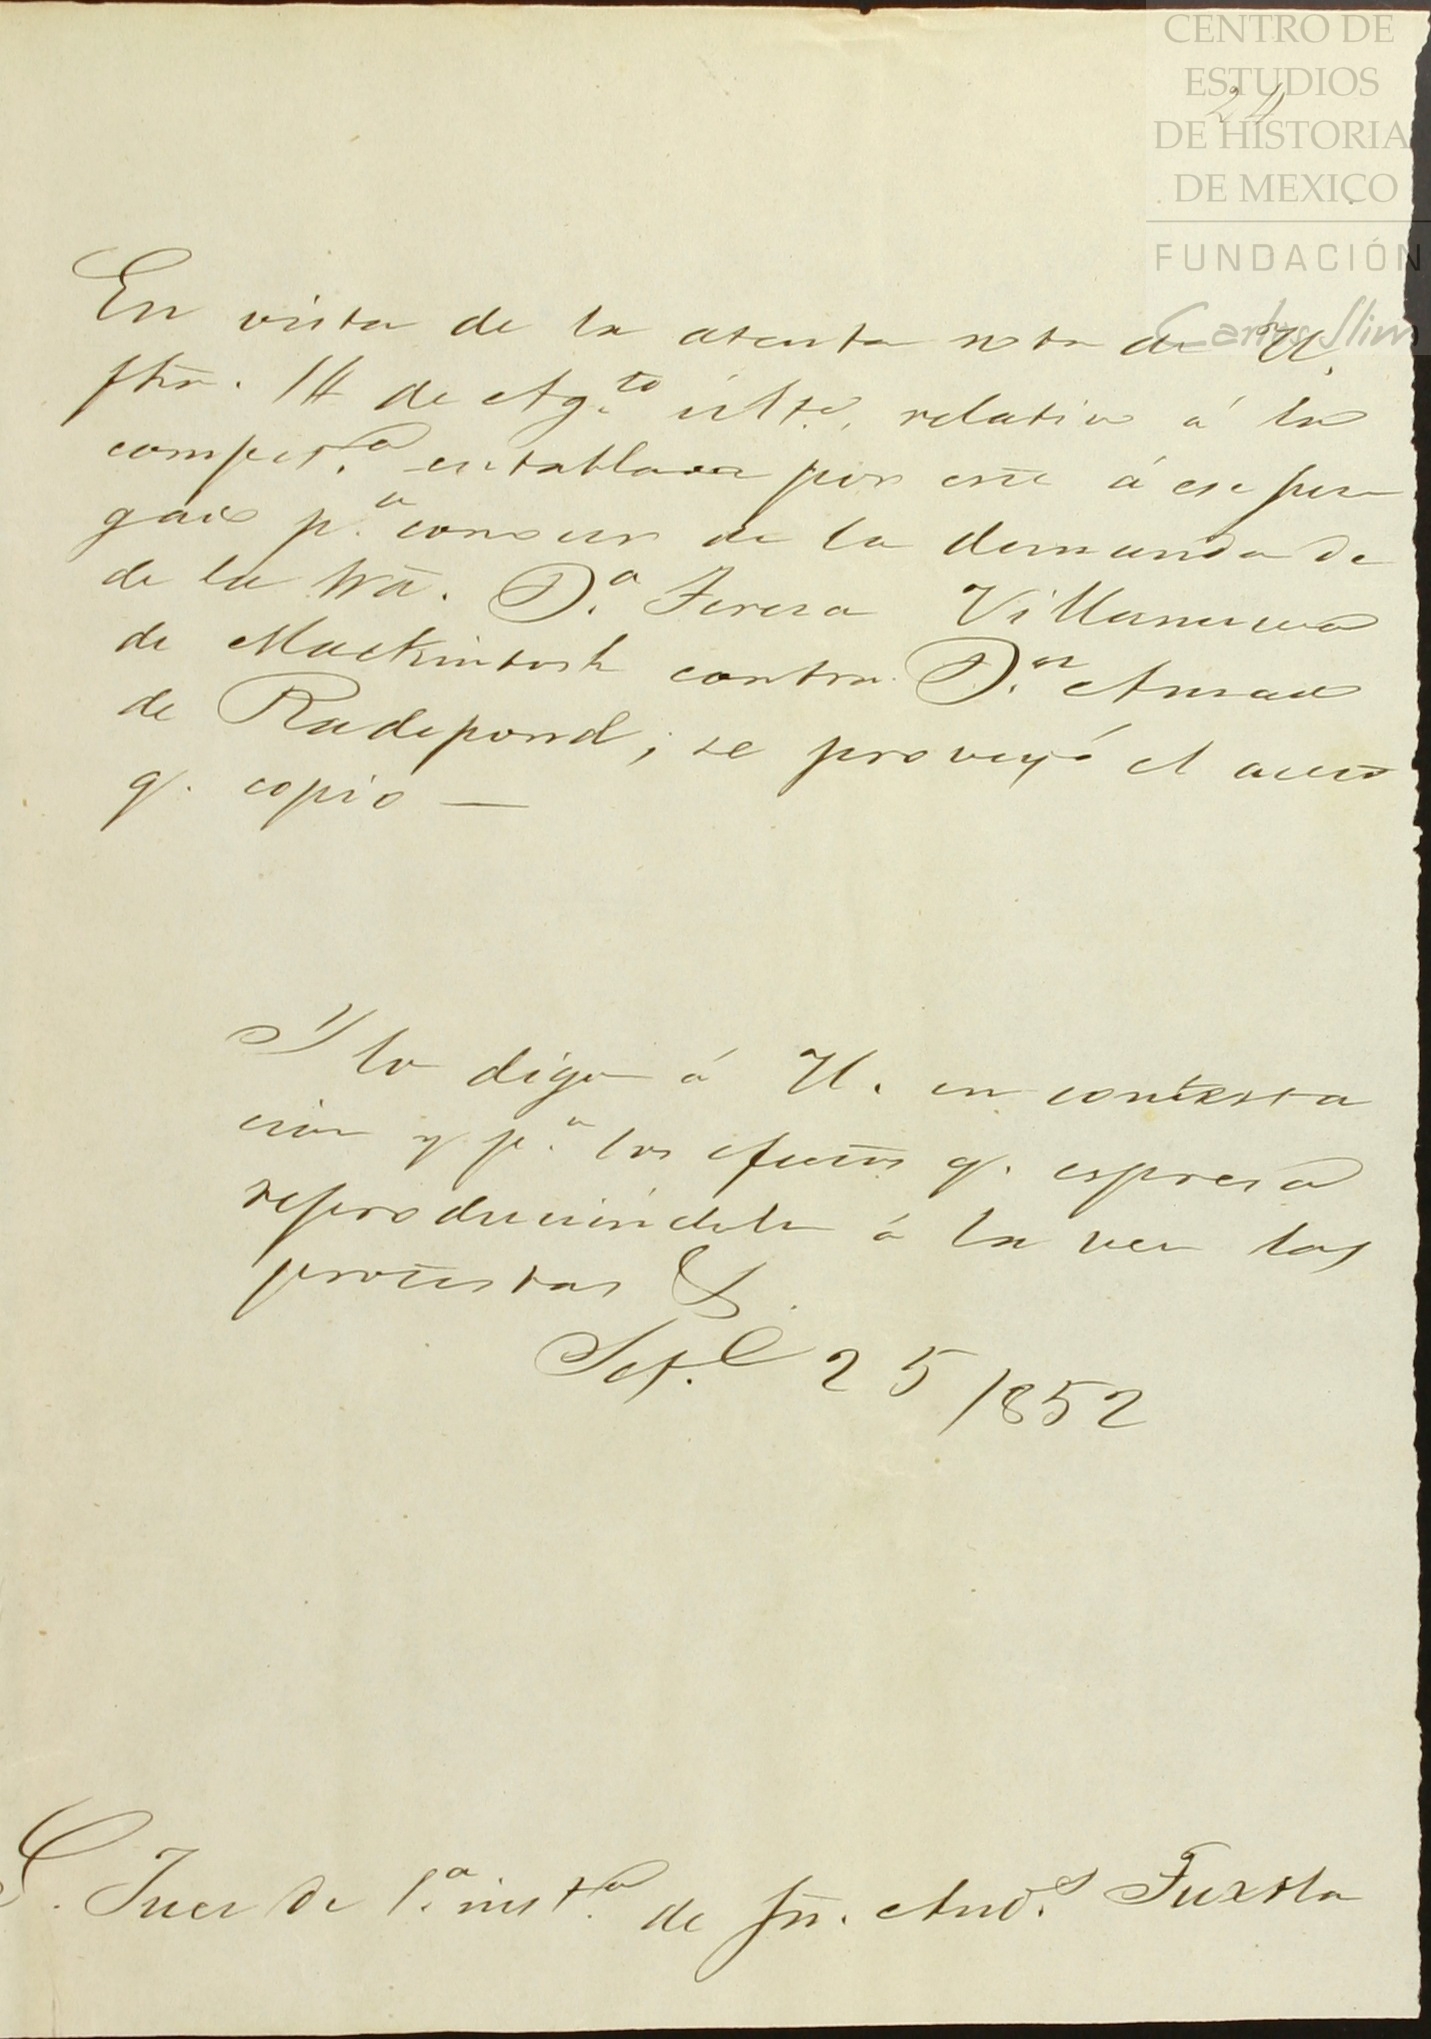 CENTRO DE
ESTUDIOS
DE HISTORIA
DE MEXICO
FUNDACIÓN
Carlos Slim
24
En vista de la atenta nota de U.
fha. 14 de Agto. últo. relativa á la
compet.a entablada por este á ese juz
gado p.a conocer de la demanda de
de la Sra. D.a Teresa Villanueva
de Mackintosh contra D.n Amado
de Radepond, se proveyó el auto
q. copio —
Y lo digo á U. en contesta
cion y p.a los efectos q. espresa
reproduciendole á la vez las
protestas &.
Set.e 25 1852
S. Juez de 1.a inst.a de Sn. And.s Tuxtla